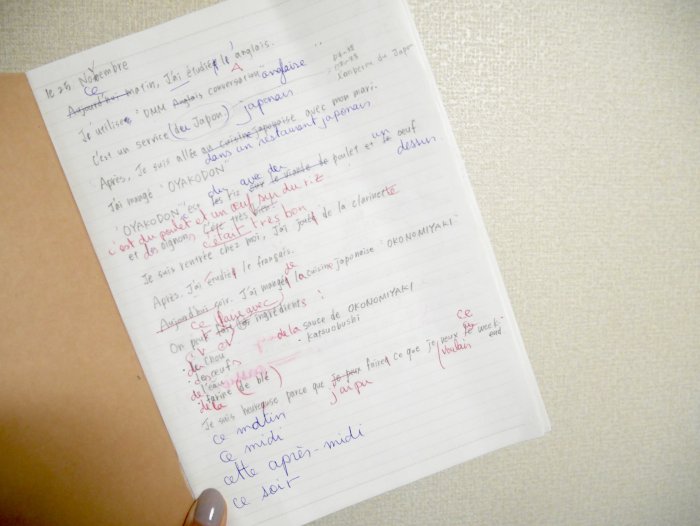 le 25 Novembre
Ce
Aujourd'hui matin, J'ai étudié l'anglais.
J'ai utilisé "DMM Anglais conversation anglaise
C'est un service (du Japon) japonais
Après, Je suis allée au cuisine japonaise avec mon mari.
dans un restaurant japonais
J'ai mangé "OYAKODON"
du avec du un
"OYAKODON" est riz poulet et oeuf dessus
c'est du poulet et un oeuf sur du riz
et des oignons, très
c'était très bon
Je suis rentrée chez moi, J'ai joué de la clarinette
Après, J'ai étudié le français.
de
Aujourd'hui soir, J'ai mangé la cuisine japonaise "OKONOMIYAKI"
Ce (faire avec)
On peut ingrédients :
du chou de la sauce de OKONOMIYAKI
des oeufs katsuobushi
de l'eau
farine (de blé)
de la
Ce
Je suis heureuse parce que je peux faire ce que je peux le week-end
j'ai pu (voulais
ce matin
ce midi
cette après-midi
ce soir